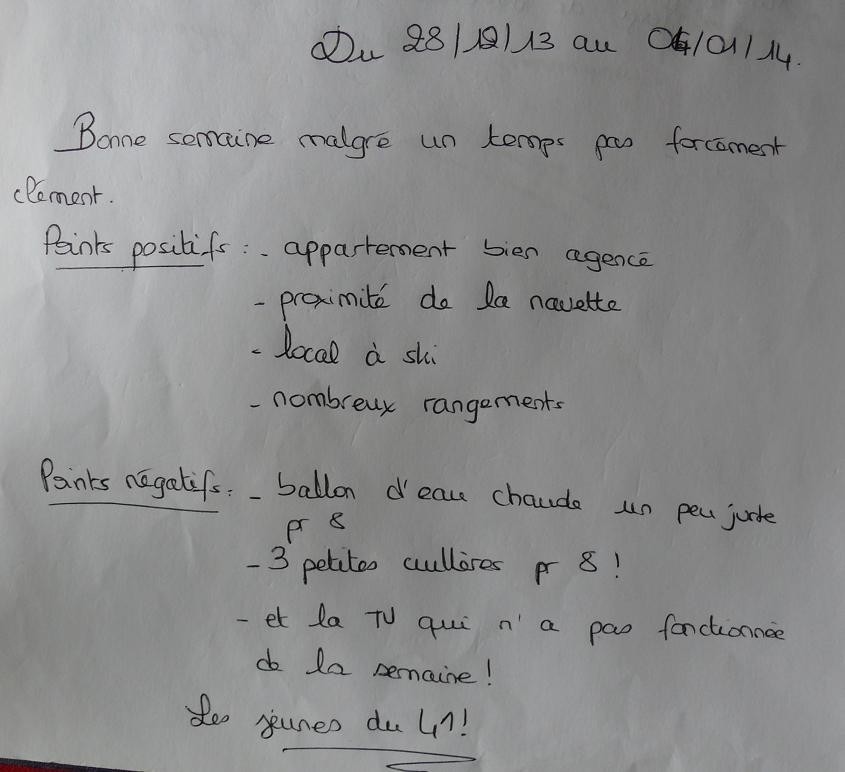 Du 28/12/13 au 04/01/14.
Bonne semaine malgré un temps pas forcément
clément.
Points positifs : - appartement bien agencé
- proximité de la navette
- local à ski
- nombreux rangements
Points négatifs : - ballon d'eau chaude un peu juste
pr 8
- 3 petites cuillères pr 8 !
- et la TV qui n'a pas fonctionnée
de la semaine !
Les jeunes du 41 !